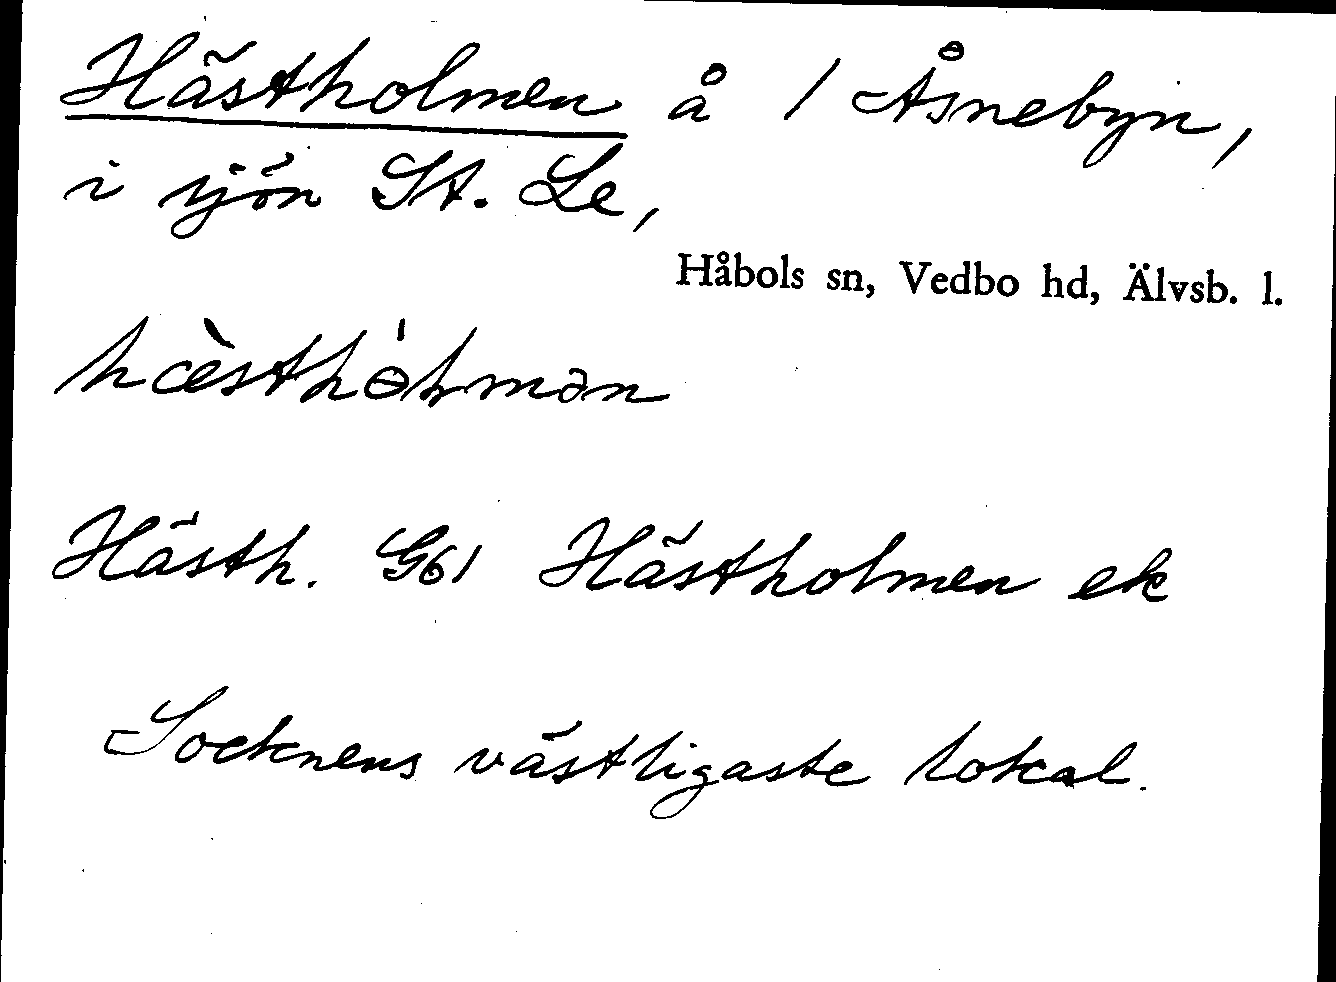 Hästholmen å 1 Åsnebyn,
i sjön St. Le,
Håbols sn, Vedbo hd, Älvsb. l.
hæ̀sthɵ́lmən
Hästh. G61 Hästholmen ek
Socknens västligaste lokal.